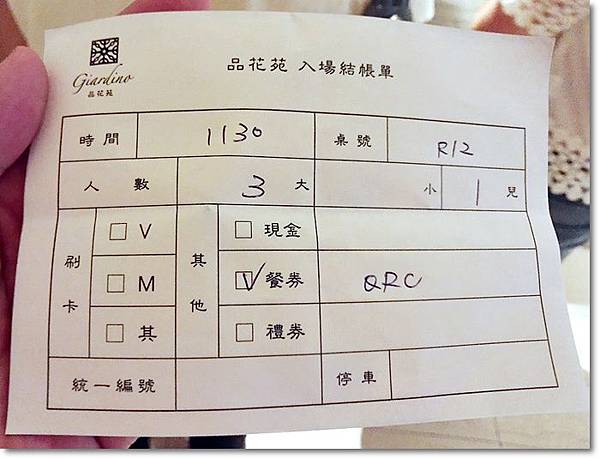 Giardino
品花苑
品花苑 入場結帳單
時間 1130 桌號 R12
人數 3 大 小 1 兒
刷卡 □ V 其他 □ 現金
□ M ☑ 餐券 QRC
□ 其 □ 禮券
統一編號 停車